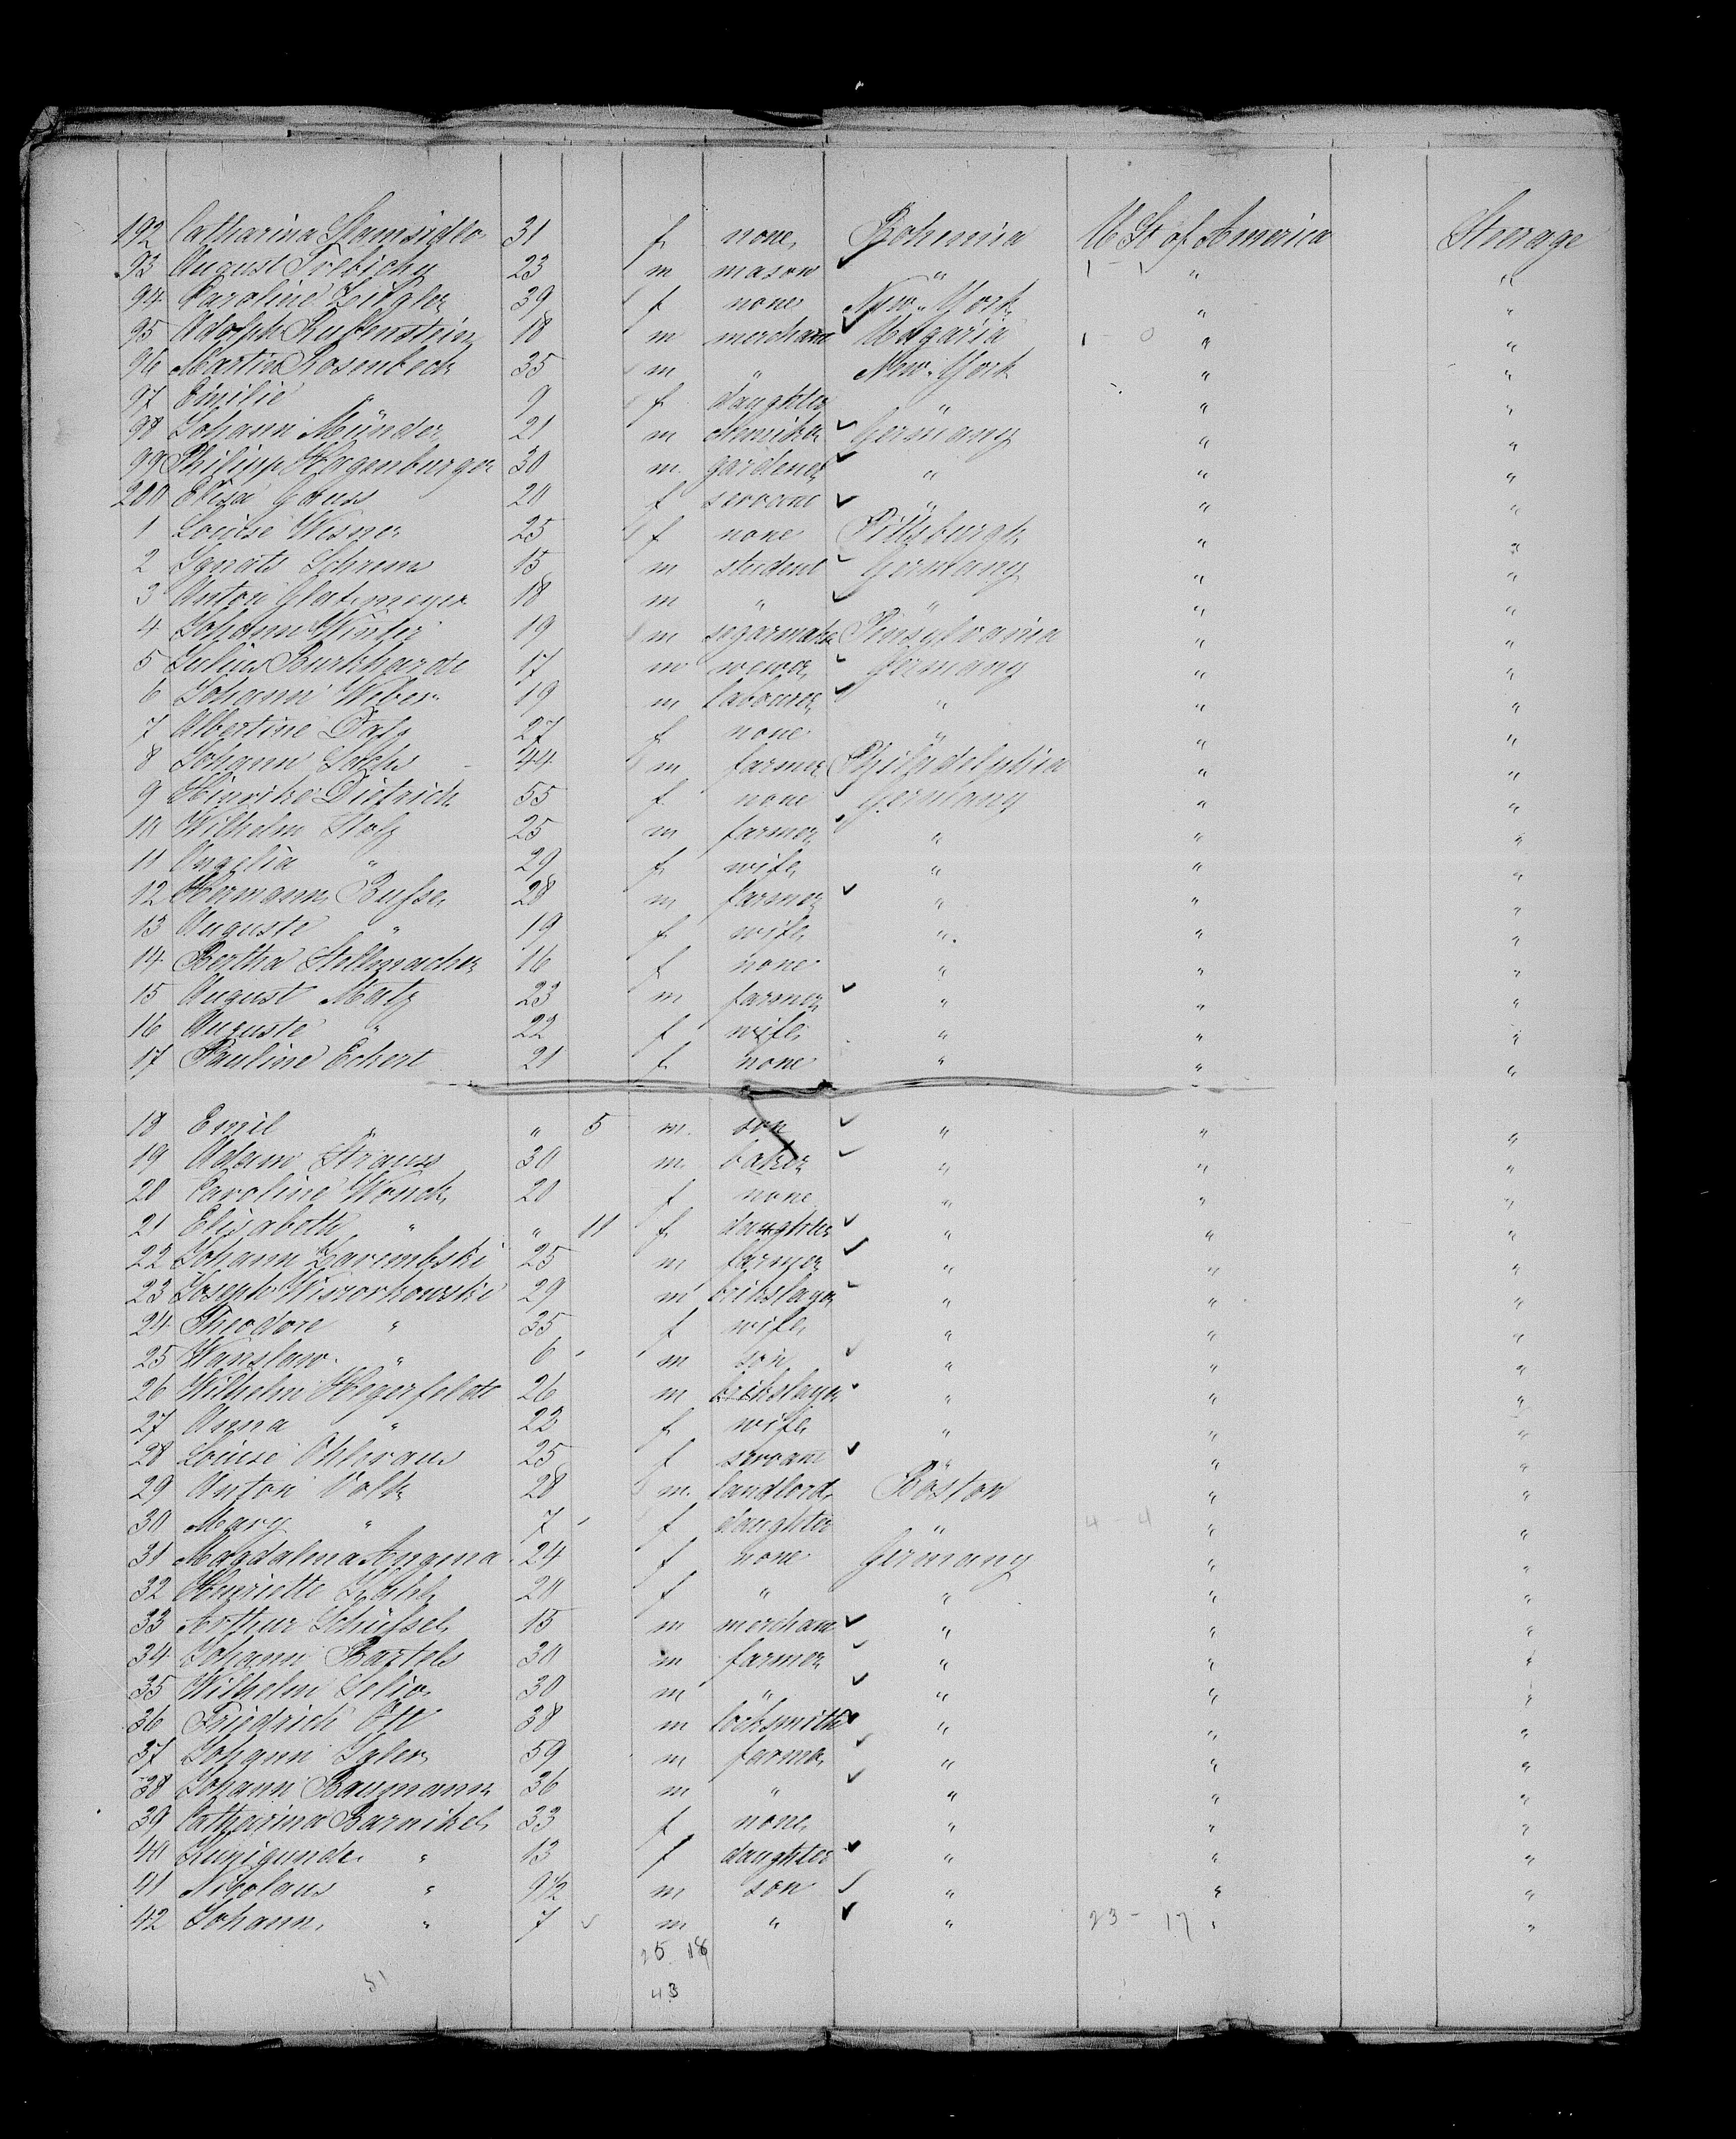 192 Catharina 31 f none Bohemia U St of America Steerage
93 August Trebichy 23 m mason " 1 - 1 " "
94 Caroline Ziegler 39 f none New-York " "
95 Adolph Rubenstein 18 m merchant Ungaria 1 - 0 " "
96 Martin Rosenbeck 35 m " New-York " "
97 Emilie " 9 f daughter " " "
98 Johann Münder 21 m Germany " "
99 Philipp Hagenburger 30 m gardener " " "
200 Elisa Gauss 20 f servant " " "
1 Louise Wesner 25 f none Pittsburgh " "
2 Ignats Schrem 15 m student Germany " "
3 Anton Glatzmeyer 18 m " " " "
4 Johann Winter 19 m segarmaker Pensylvania " "
5 Julius Burkhardt 17 m Germany " "
6 Johann Weber 19 m labourer " " "
7 Albertine 27 f none " " "
8 Johann Sachs 44 m farmer Philadelphia " "
9 Henrike Dietrich 55 f none Germany " "
10 Wilhelm Stolz 25 m farmer " " "
11 Angelia " 29 f wife " " "
12 Hermann Busse 28 m farmer " " "
13 Auguste " 19 f wife " " "
14 Bertha Stellmacher 16 f none " " "
15 August Matz 23 m farmer " " "
16 Auguste " 22 f wife " " "
17 Pauline Eckert 21 f none " " "
18 Emil " " 5 m son " " "
19 Adam Strauss 30 m baker " " "
20 Caroline Wonck 20 f none " " "
21 Elisabeth " " 11 f daughter " " "
22 Johann Zarembski 25 m farmer " " "
23 Joseph Wisnorkowski 29 m brikslayer " " "
24 Theodore " 35 f wife " " "
25 Wanslaw " 6 m son " " "
26 Wilhelm Hegerfeldt 26 m brikslayer " " "
27 Anna " 22 f wife " " "
28 Louise Ohloraus 25 f servant " " "
29 Anton Volk 28 m landlord Boston " "
30 Mary " 7 f daughter " 4 - 4 " "
31 Magdalena Angma 24 f none Germany " "
32 Henriette 20 f " " " "
33 Arthur Schüssel 15 m merchant " " "
34 Johann Bartels 30 m farmer " " "
35 Wilhelm Selio 30 m " " " "
36 Friedrich Ott 38 m locksmith " " "
37 Johann Igler 59 m farmer " " "
38 Johann Baumann 36 m " " " "
39 Catharina Barnikel 33 f none " " "
40 Kunigunde " 13 f daughter " " "
41 Nicolaus " 9 1/2 m son " " "
42 Johann " 7 m " " 23 - 17 " "
25 18
51 43